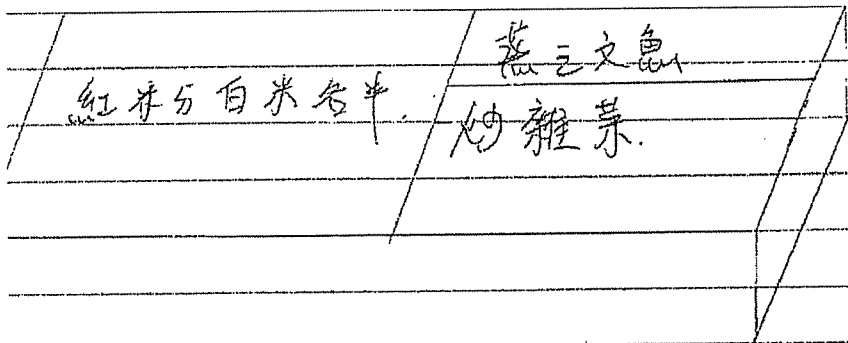 紅米分白米各半.
蒸三文魚
炒雜菜.